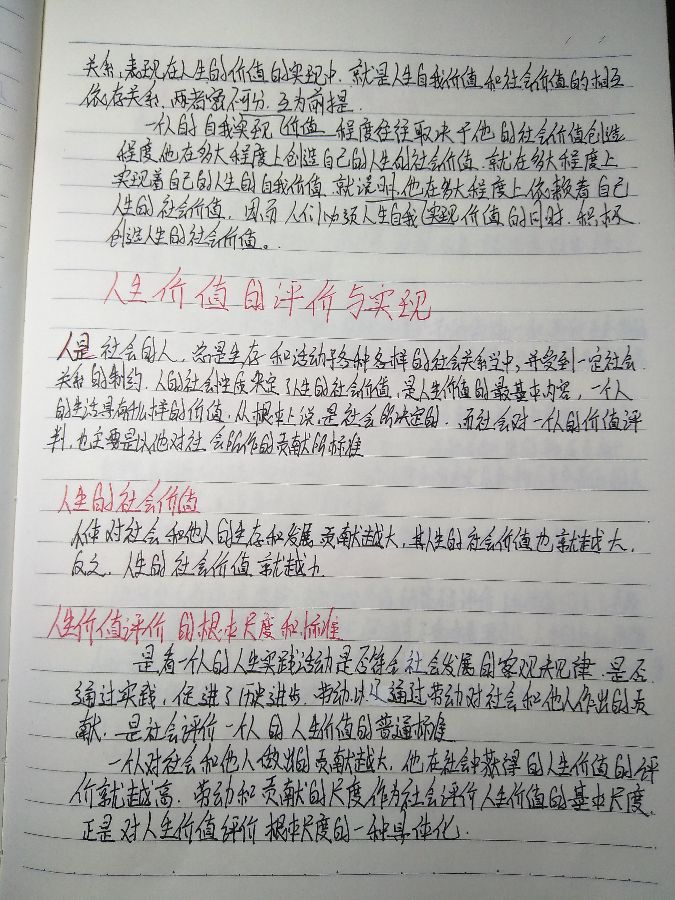 关系,表现在人生的价值的实现中.就是人生自我价值和社会价值的相互
依存关系.两者密不可分.互为前提.
一个人的自我实现价值程度往往取决于他的社会价值创造
程度他在多大程度上创造自己的人生的社会价值.就在多大程度上
实现着自己的人生的自我价值.就说明他在多大程度上依赖着自己
人生的社会价值.因而人们必须人生自我实现价值的同时.积极
创造人生的社会价值。
人生价值的评价与实现
人是社会的人,总是生存和活动于各种各样的社会关系当中,并受到一定社会
关系的制约.人的社会性质决定了人生的社会价值,是人生价值的最基本内容,一个人
的生活具有什么样的价值.从根本上说,是社会所决定的.而社会对一个人的价值评
判,也主要是以他对社会所作的贡献所标准
人生的社会价值
个体对社会和他人的生存和发展贡献越大,其人生的社会价值也就越大.
反之.人生的社会价值就越小
人生价值评价的根本尺度和标准
是看一个人的人生实践活动是否符合社会发展的客观规律.是否
通过实践,促进了历史进步.劳动以及通过劳动对社会和他人作出的贡
献.是社会评价一个人的人生价值的普遍标准
一个人对社会和他人做出的贡献越大.他在社会中获得的人生价值的评
价就越高.劳动和贡献的尺度作为社会评价人生价值的基本尺度.
正是对人生价值评价根本尺度的一种具体化.